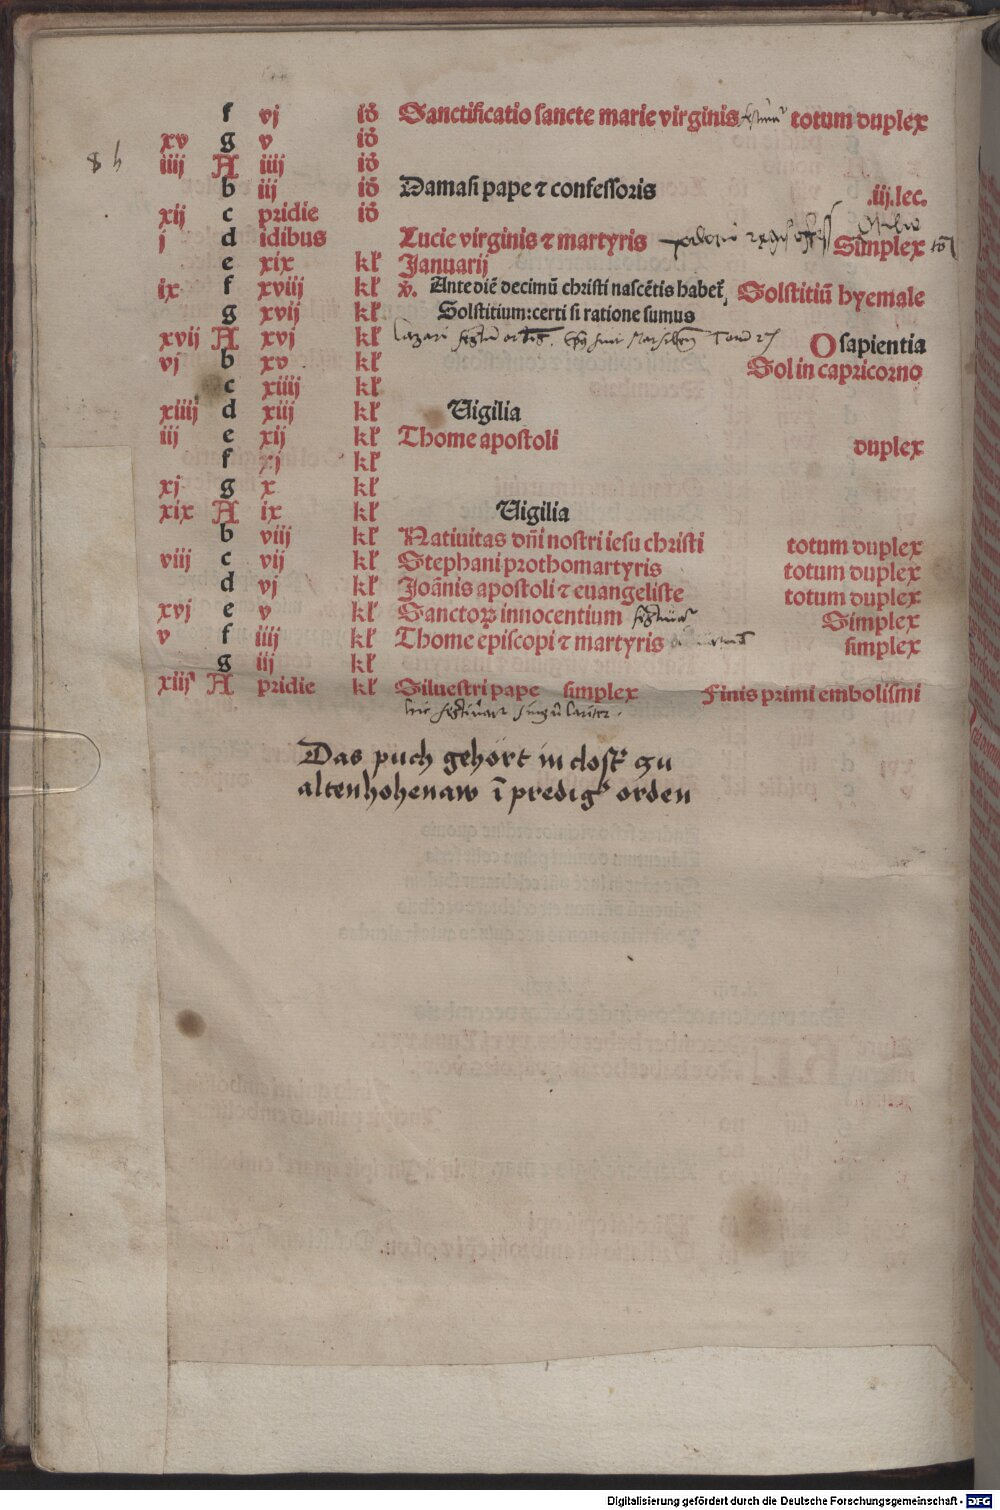 f vj id̄ Sanctificatio sancte marie virginis totum duplex
xv g v id̄
iiij A iiij id̄
b iij id̄ Damasi pape ⁊ confessoris .iij.lec.
xij c pridie id̄
j d idibus Lucie virginis ⁊ martyris Simplex
e xix kł Januarij
ix f xviij kł Ante diē decimū christi nascētis habet Solstitiū hyemale
g xvij kł Solstitium:certi si ratione sumus
xvij A xvj kł O sapientia
vj b xv kł Sol in capricorno
c xiiij kł
xiiij d xiij kł Vigilia
iij e xij kł Thome apostoli duplex
f xj kł
xj g x kł
xix A ix kł Vigilia
b viij kł Natiuitas dn̄i nostri iesu christi totum duplex
viij c vij kł Stephani prothomartyris totum duplex
d vj kł Joānis apostoli ⁊ euangeliste totum duplex
xvj e v kł Sanctoꝝ innocentium Simplex
v f iiij kł Thome episcopi ⁊ martyris simplex
g iij kł
xiij A pridie kł Siluestri pape simplex Finis primi embolismi
Das puch gehört in clost' zu
altenhohenaw ī predig' orden
Digitalisierung gefördert durch die Deutsche Forschungsgemeinschaft - DFG